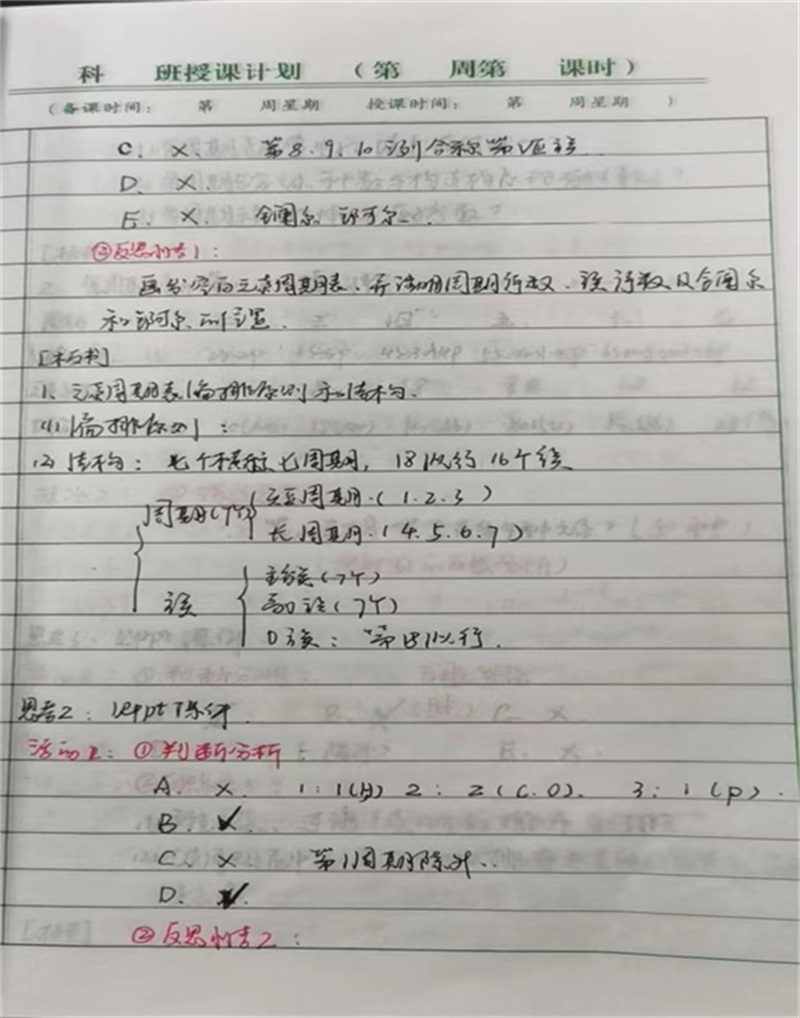 科 班授课计划 （第 周第 课时）
（备课时间： 第 周星期 授课时间： 第 周星期 ）
C. ×. 第8.9.10 列合称第Ⅷ族
D. ×.
E. ×. 金属
②反思性 1：
画出 元素周期表、并说明周期行数、族 数及含
和 位置.
[板书]
1. 元素周期表编排原则和结构.
(1) 编排原则：
(2) 结构：七个横 七周期，18纵行16个族
周期(7个) 短周期.(1.2.3)
长周期.(4.5.6.7)
族 主族(7个)
副族(7个)
0族：第18纵行.
思考2：见ppt课件.
活动2：①判断分析：
A. ×. 1：1(H) 2：2(C.O). 3：1(P).
B. ✓.
C. × 第1周期除外..
D. ✓.
②反思性 2：